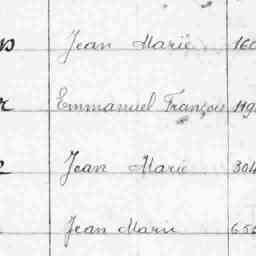 Jean Marie 160
Emmanuel François 119
Jean Marie 304
Jean Marie 650